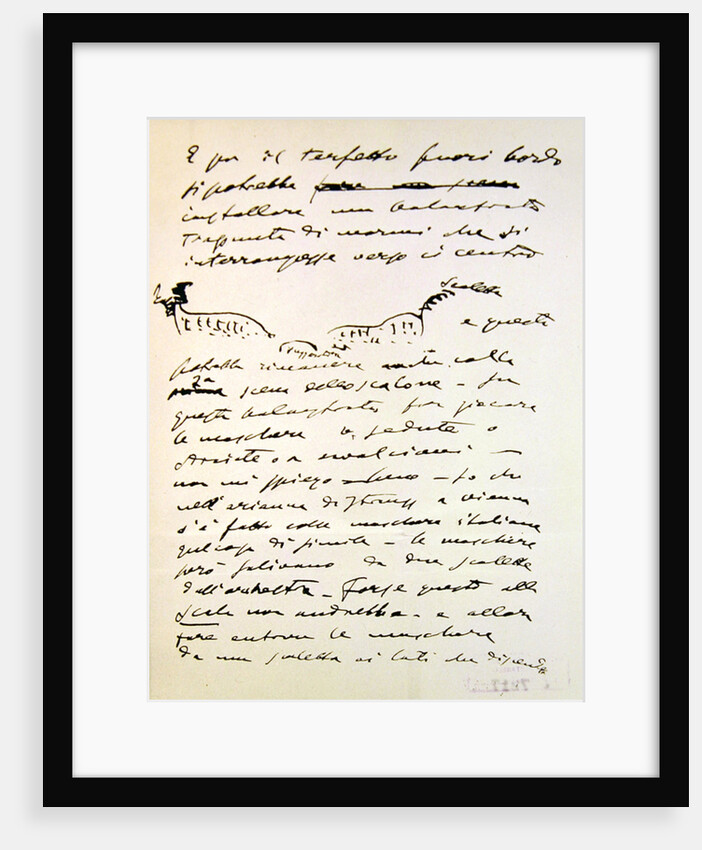 E per il perfetto fuori bordo
si potrebbe
installare una balaustrata
Trapunta di marmi che si
interrompesse verso il centro
Scaletta
e questa
potrebbe rimanere anche colla
2a scena dello scalone – su
questa balaustrata far giocare
le maschere o sedute o
sdraiate o a cavalcioni –
non mi spiego bene – so che
nell'arianna di Strauss a vienna
s'è fatto colle maschere italiane
qualcosa di simile – le maschere
però salivano da due scalette
dall'orchestra – Forse questo alla
Scala non andrebbe – e allora
fare entrare le maschere
da una scaletta ai lati che